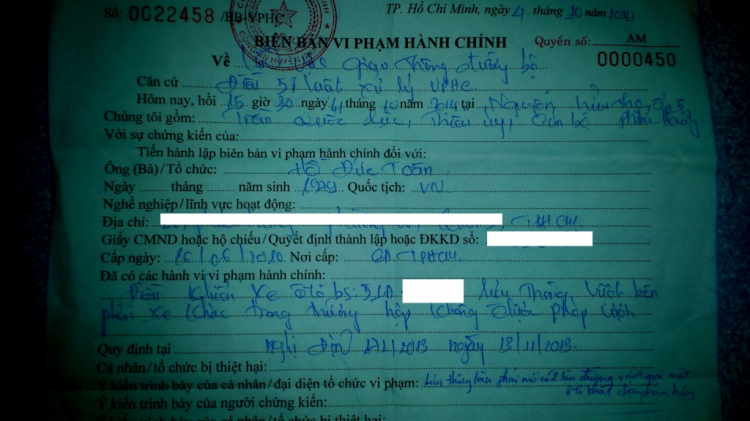 Số: 0022458 /BB-VPHC
TP. Hồ Chí Minh, ngày 4 tháng 10 năm 2014
BIÊN BẢN VI PHẠM HÀNH CHÍNH
Quyển số: AM
0000450
Về giao thông đường bộ
Căn cứ Điều 51 Luật xử lý VPHC
Hôm nay, hồi 15 giờ 30 ngày 4 tháng 10 năm 2014 tại Nguyễn Hữu Thọ
Chúng tôi gồm: Trần Quốc Thiếu úy, Cán bộ
Với sự chứng kiến của:
Tiến hành lập biên bản vi phạm hành chính đối với:
Ông (Bà)/Tổ chức: Hồ Đức Toàn
Ngày tháng năm sinh 1979 Quốc tịch: VN
Nghề nghiệp/lĩnh vực hoạt động:
Địa chỉ: TPHCM
Giấy CMND hoặc hộ chiếu/Quyết định thành lập hoặc ĐKKD số:
Cấp ngày: 16/06/2010 Nơi cấp: CA TPHCM
Đã có các hành vi vi phạm hành chính:
Điều khiển xe ôtô bs: 51A- lưu thông vượt bên
phải xe khác trong trường hợp không được phép
Quy định tại Nghị Định 171/2013 ngày 13/11/2013
Cá nhân/tổ chức bị thiệt hại:
Ý kiến trình bày của cá nhân/đại diện tổ chức vi phạm: lưu thông
Ý kiến trình bày của người chứng kiến:
Ý kiến trình bày của cá nhân/tổ chức bị thiệt hại: